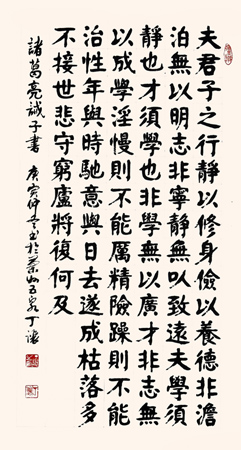 夫君子之行靜以修身儉以養德非澹
泊無以明志非寧靜無以致遠夫學須
靜也才須學也非學無以廣才非志無
以成學淫慢則不能厲精險躁則不能
治性年與時馳意與日去遂成枯落多
不接世悲守窮廬將復何及
諸葛亮誡子書 庚寅仲冬書於 丁